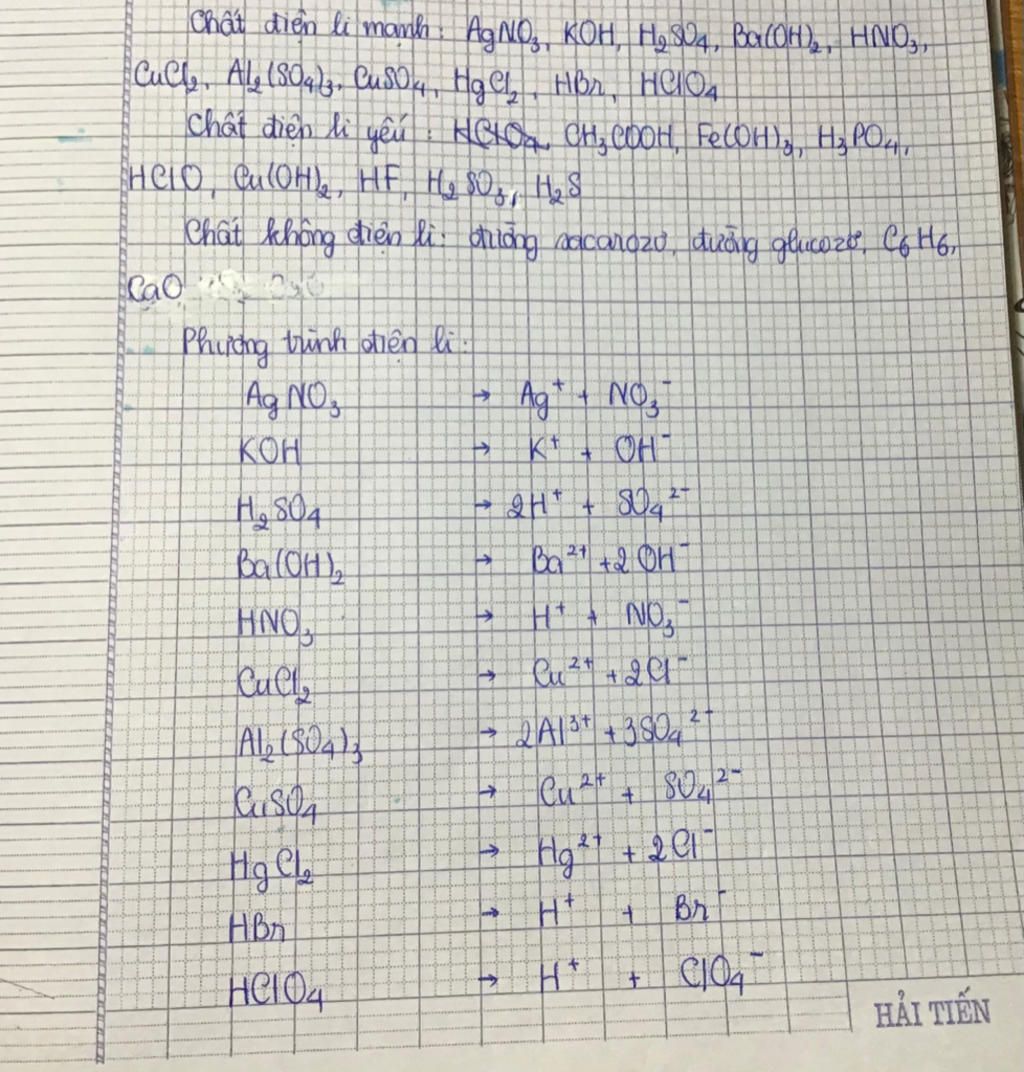 Chất điện li mạnh: AgNO₃, KOH, H₂SO₄, Ba(OH)₂, HNO₃,
CuCl₂, Al₂(SO₄)₃, CuSO₄, HgCl₂, HBr, HClO₄
Chất điện li yếu: HClO₄, CH₃COOH, Fe(OH)₃, H₃PO₄,
HClO, Cu(OH)₂, HF, H₂SO₃, H₂S
Chất không điện li: đường saccarozơ, đường glucozơ, C₆H₆,
CaO
Phương trình điện li:
AgNO₃ → Ag⁺ + NO₃⁻
KOH → K⁺ + OH⁻
H₂SO₄ → 2H⁺ + SO₄²⁻
Ba(OH)₂ → Ba²⁺ + 2OH⁻
HNO₃ → H⁺ + NO₃⁻
CuCl₂ → Cu²⁺ + 2Cl⁻
Al₂(SO₄)₃ → 2Al³⁺ + 3SO₄²⁻
CuSO₄ → Cu²⁺ + SO₄²⁻
HgCl₂ → Hg²⁺ + 2Cl⁻
HBr → H⁺ + Br⁻
HClO₄ → H⁺ + ClO₄⁻
HẢI TIẾN